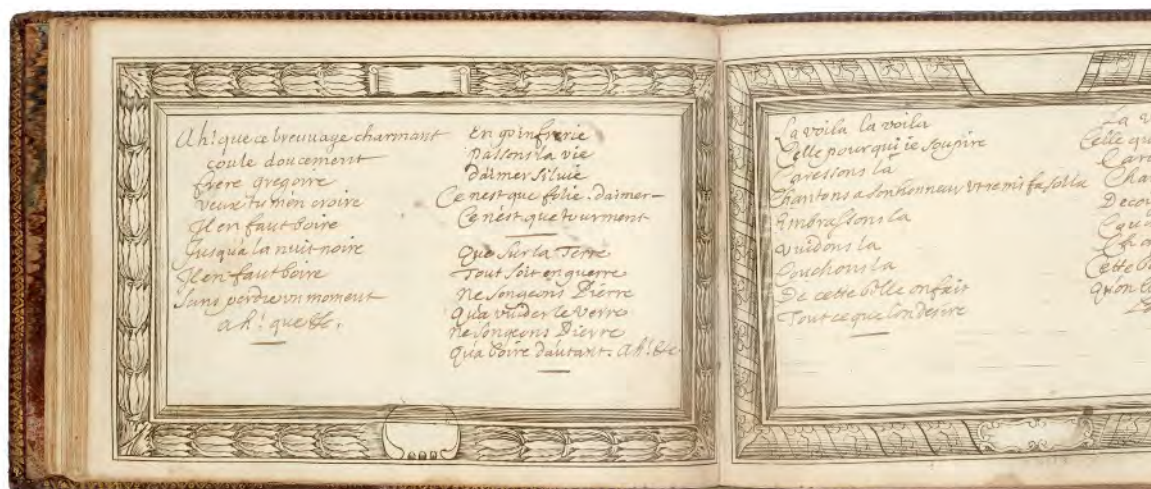 Ah! que ce breuuage charmant
coule doucement
frere gregoire
veux tu mon croire
Il en faut boire
Jusqu'a la nuit noire
Il en faut boire
Sans perdre un moment
Ah! que &c.
En goinfrerie
Passons la vie
D'aimer Siluie
Ce n'est que folie. d'aimer
Ce n'est que tourment
Que Sur la Terre
Tout Soit en guerre
Ne Songeons Pierre
Qu'a vuider le Verre
Ne Songeons Pierre
Qu'a boire d'autant. Ah! &c
La voila la voila
Celle pour qui ie Soupire
Caressons la
Chantons a Son honneur vt re mi fa Sol la
Ambrassons la
Vuidons la
Couchons la
De cette belle on fait
Tout ce que l'on desire
La
Celle
Cette